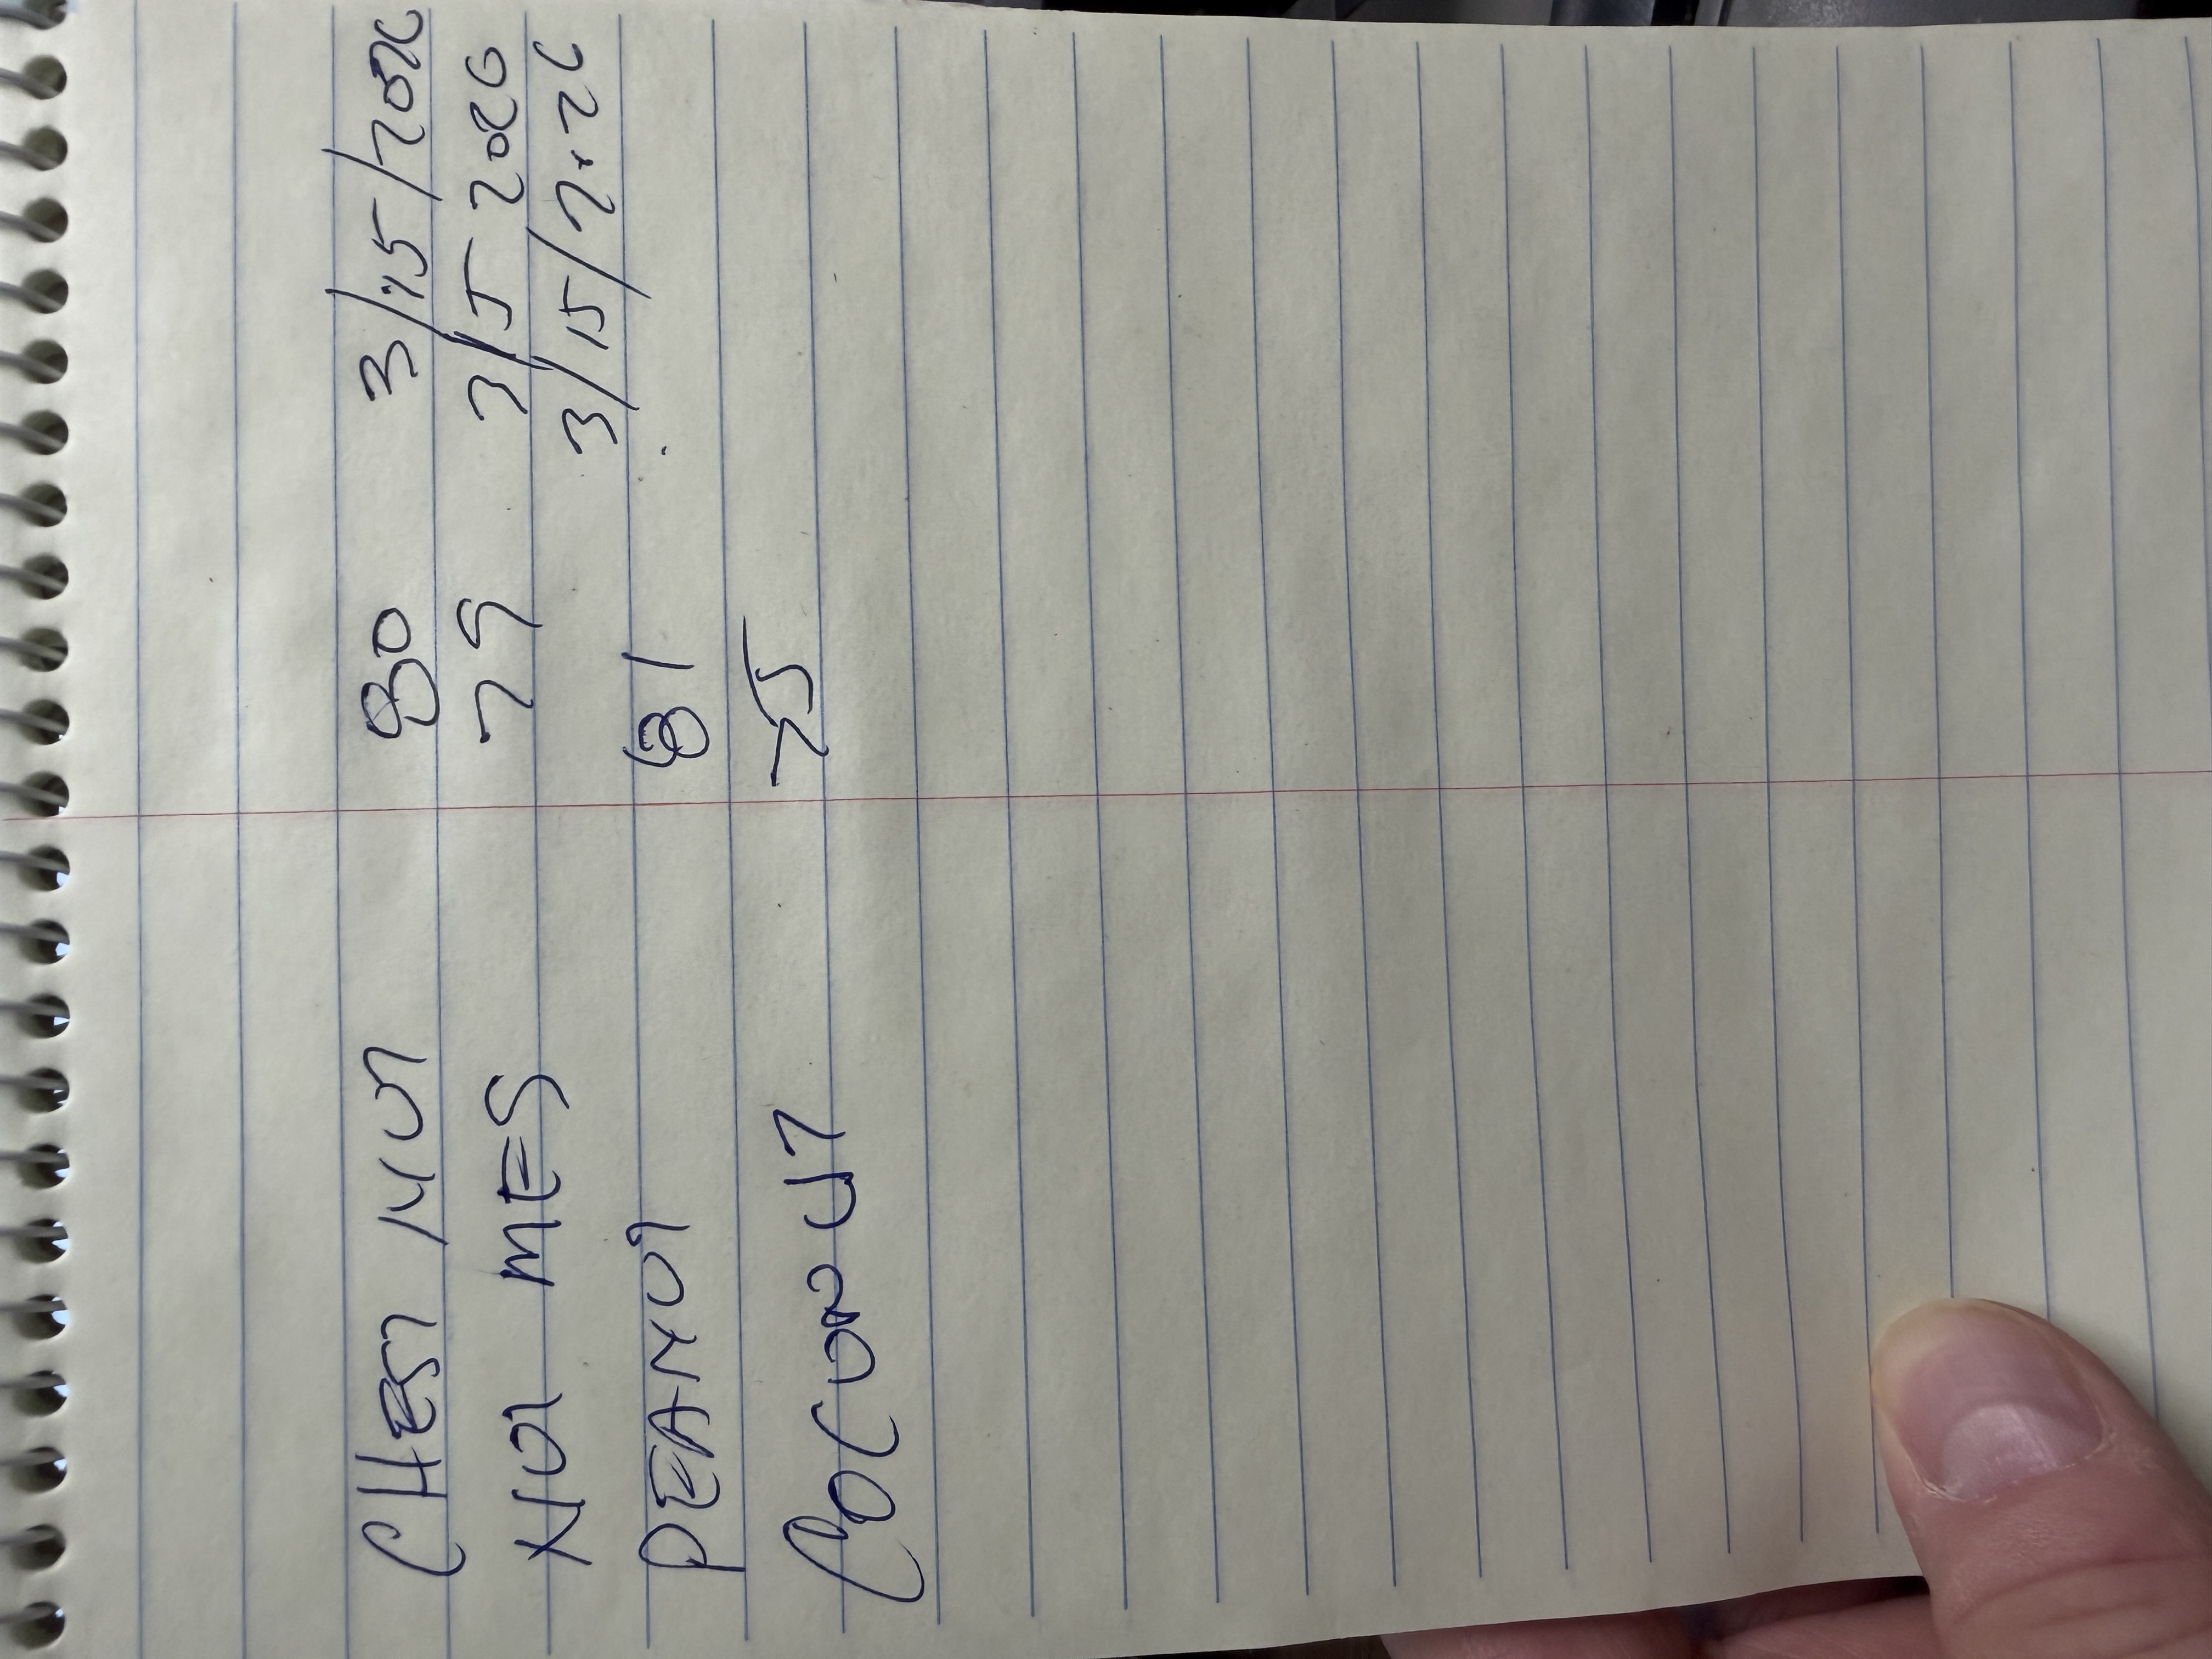 CHESTNUT 80 3/15/2026
NUTMEG 79 3/5 2026
3/15/2026
PEANUT 81
COCONUT 75